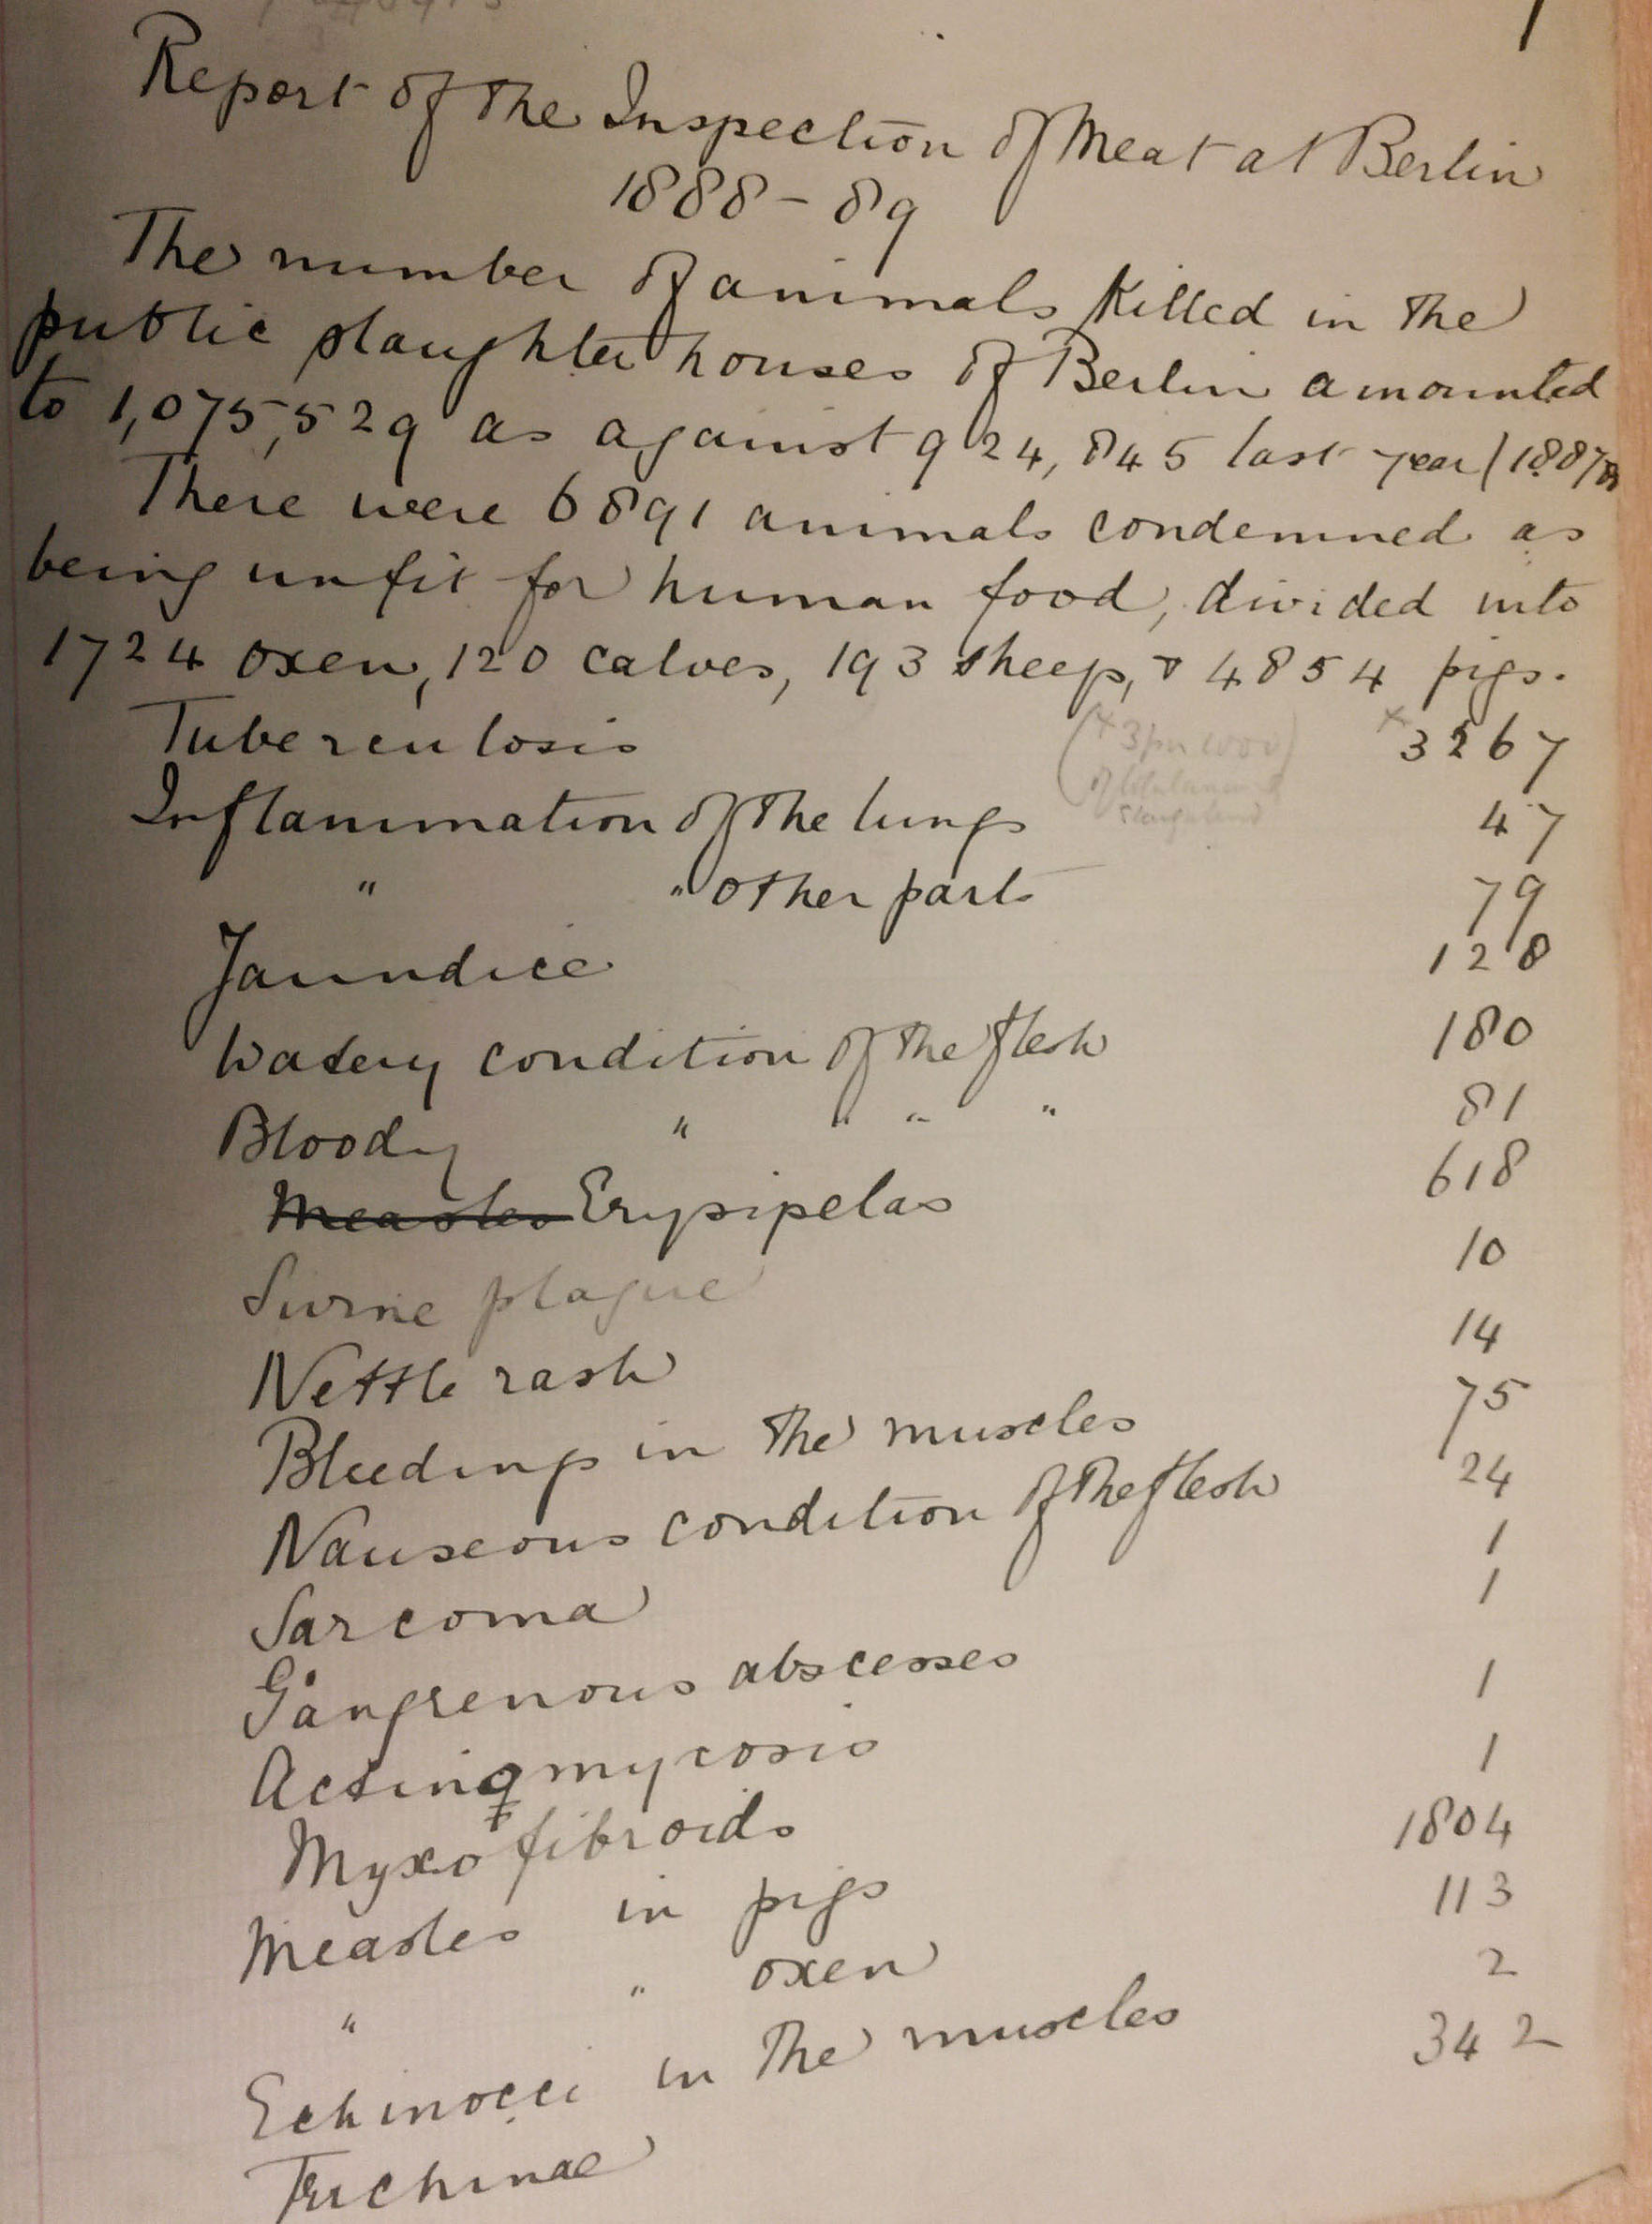 Report of the Inspection of Meat at Berlin
1888-89
The number of animals killed in the
public slaughter houses of Berlin amounted
to 1,075,529 as against 924,845 last year (1887
There were 6891 animals condemned as
being unfit for human food, divided into
1724 oxen, 120 calves, 193 sheep, & 4854 pigs.
Tuberculosis (+ 3 per 1000 × 3267
Inflammation of the lungs 47
" " other parts 79
Jaundice 128
Watery condition of the flesh 180
Bloody " " " " 81
Measles Erysipelas 618
Swine plague 10
Nettle rash 14
Bleedings in the muscles 75
Nauseous condition of the flesh 24
Sarcoma 1
Gangrenous abscesses 1
Actinomycosis 1
Myxofibroids 1
Measles in pigs 1804
" " oxen 113
Echinocci in the muscles 2
Trichinae 342